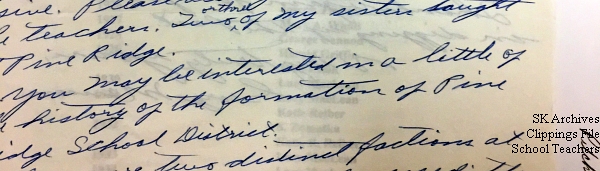 sive. Please
e teachers. Two or three of my sisters taught
Pine Ridge.
You may be interested in a little of
history of the formation of Pine
idge School District.
two distinct factions at
SK Archives
Clippings File
School Teachers